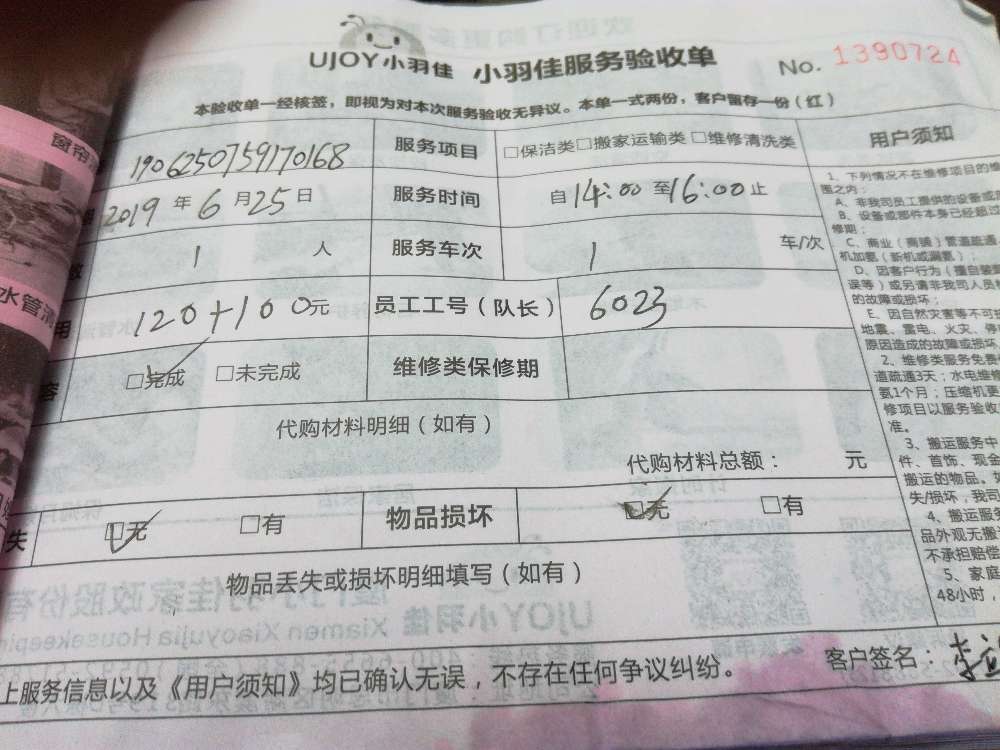 UJOY小羽佳 小羽佳服务验收单 No. 1390724
本验收单一经核签，即视为对本次服务验收无异议。本单一式两份，客户留存一份（红）
1906250759170168 服务项目 □保洁类□搬家运输类 □维修清洗类
2019 年 6 月 25 日 服务时间 自 14:00 至 16:00 止
1 人 服务车次 1 车/次
用 120+100元 员工工号（队长） 6023
容 □完成 □未完成 维修类保修期
代购材料明细（如有）
代购材料总额： 元
失 □无 □有 物品损坏 □无 □有
物品丢失或损坏明细填写（如有）
上服务信息以及《用户须知》均已确认无误，不存在任何争议纠纷。 客户签名：
用户须知
1、下列情况不在维修项目的维
围之内：
A、非我司员工提供的设备或
B、设备或部件本身已经超过
修期；
C、商业（商铺）管道疏通
机加氨（新机或漏氨）；
D、因客户行为（擅自装
误等）或另请非我司人员
的故障或损坏；
E、因自然灾害等不可
地震、雷电、火灾、停
原因造成的故障或损坏
2、维修类服务免费
道疏通3天；水电维修
氨1个月；压缩机更
修项目以服务验收
准。
3、搬运服务中
件、首饰、现金
搬运的物品。如
失/损坏，我司
4、搬运服务
品外观无搬
不承担赔偿
5、家庭
48小时，
窗帘
水管清